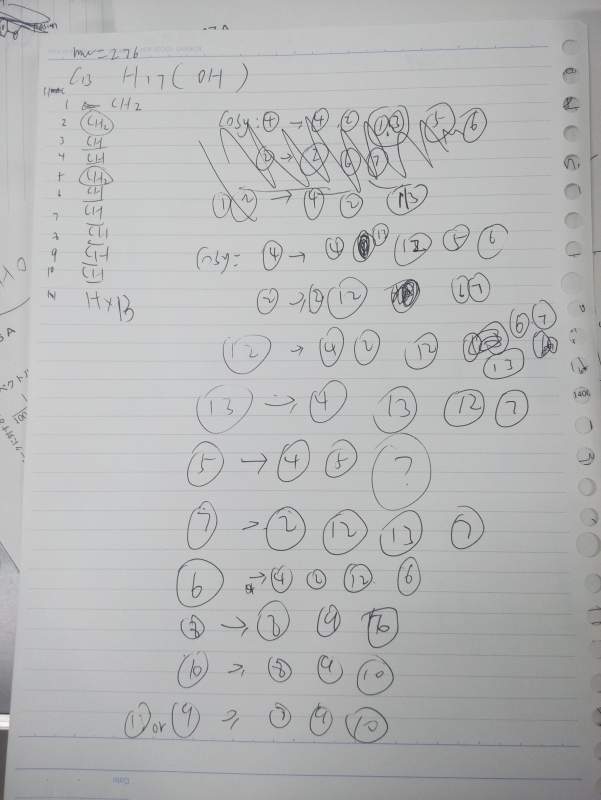 mw=276
C13 H17(OH)
1 CH2
2 CH2
3 CH
4 CH
5 CH2
6 CH
7 CH
8 CH
9 CH
10 CH
Cosy: 4 → 4 2 1,3 5 6
2 → 2 6 7
1 2 → 4 2 13
Cosy= 4 → 4 13 12 5 6
2 → 2 12 6 7
12 → 4 2 12 6 7 13
13 → 4 13 12 7
5 → 4 5 ?
7 → 2 12 13 7
6 → 4 2 12 6
8 → 8 9 10
10 → 8 9 10
11 or 9 → 8 9 10